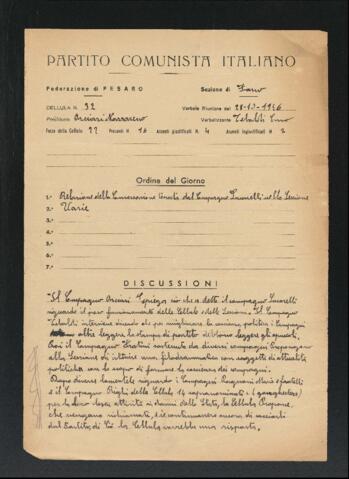 PARTITO COMUNISTA ITALIANO
Federazione di PESARO Sezione di Fano
CELLULA N. 32 Verbale Riunione del 28-12-1946
Presidente Verbalizzante Tebaldi
Forza della Cellula 22 Presenti N. 16 Assenti giustificati N. 4 Assenti ingiustificati N. 2
Ordine del Giorno
1.° Relazione della Conversazione tenuta dal Compagno alla Sezione
2.° Varie
3.°
4.°
5.°
6.°
7.°
DISCUSSIONI
Il Compagno spiega ciò che ha detto il compagno
riguardo il funzionamento delle Cellule e delle Sezioni. Il Compagno
Tebaldi interviene dicendo che per migliorare la politica i Compagni
oltre leggere la stampa di partito debbono leggere gli opuscoli.
Poi il Compagno sostenuto da diversi compagni propongono
alla Sezione di istituire una filodrammatica con soggetti di attualità
politica con lo scopo di formare la coscienza dei compagni.
Dopo diverse lamentele riguardo i Compagni Mario e fratelli
e il Compagno della Cellula 14 soprannominati
per la loro attività ai danni dello Stato, la Cellula propone
che vengano richiamati, e se continuano ancora di cacciarli
dal Partito, di la Cellula vorrebbe una risposta.